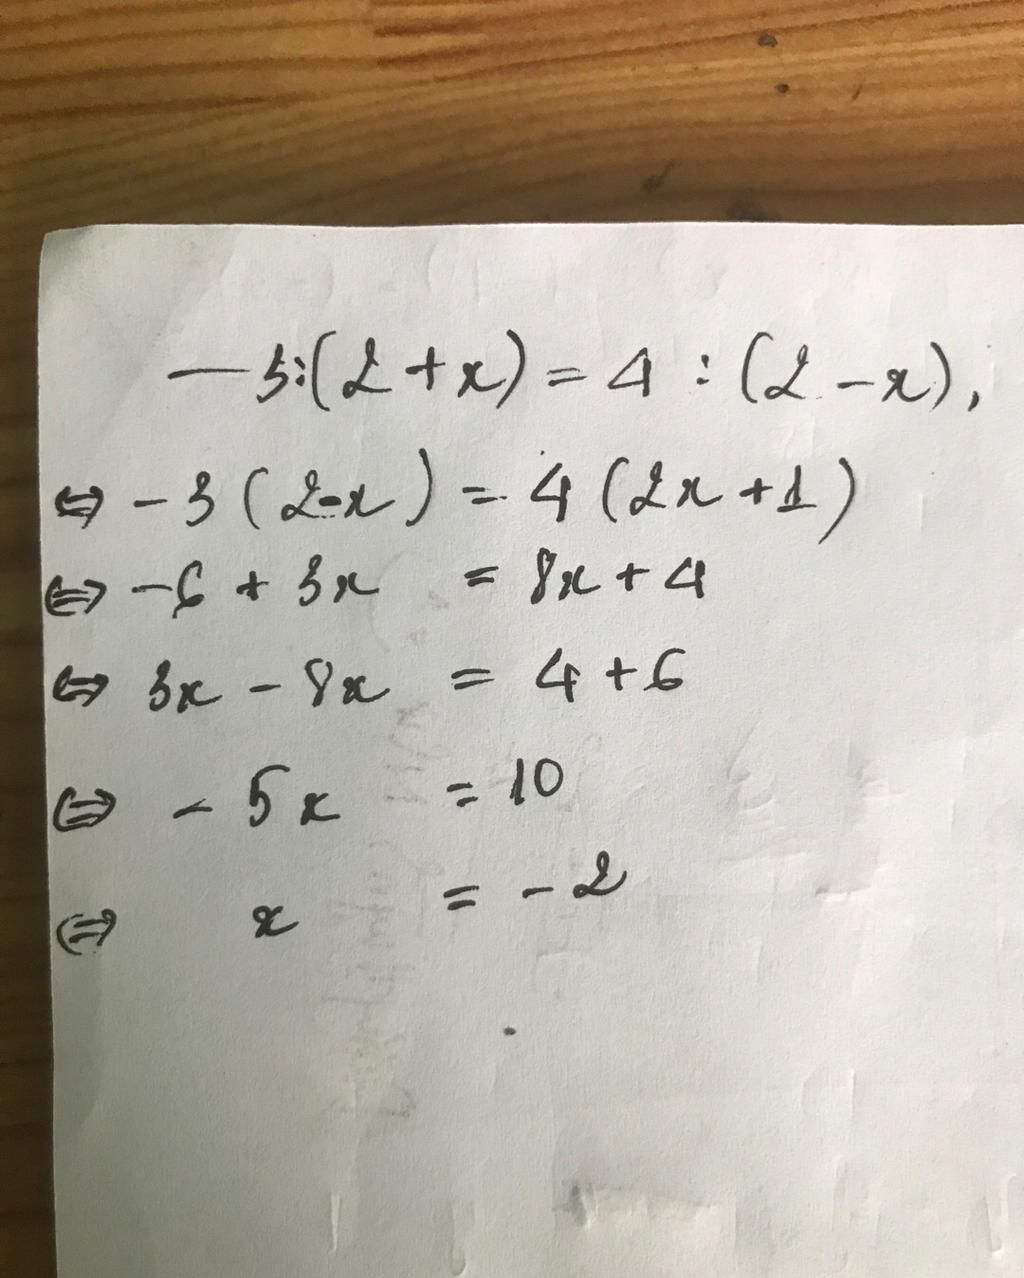 — 3:(2 + x) = 4 : (2 - x),
⇔ - 3 (2-x) = 4 (2x + 1)
⇔ - 6 + 3x = 8x + 4
⇔ 3x - 8x = 4 + 6
⇔ - 5x = 10
⇔ x = - 2